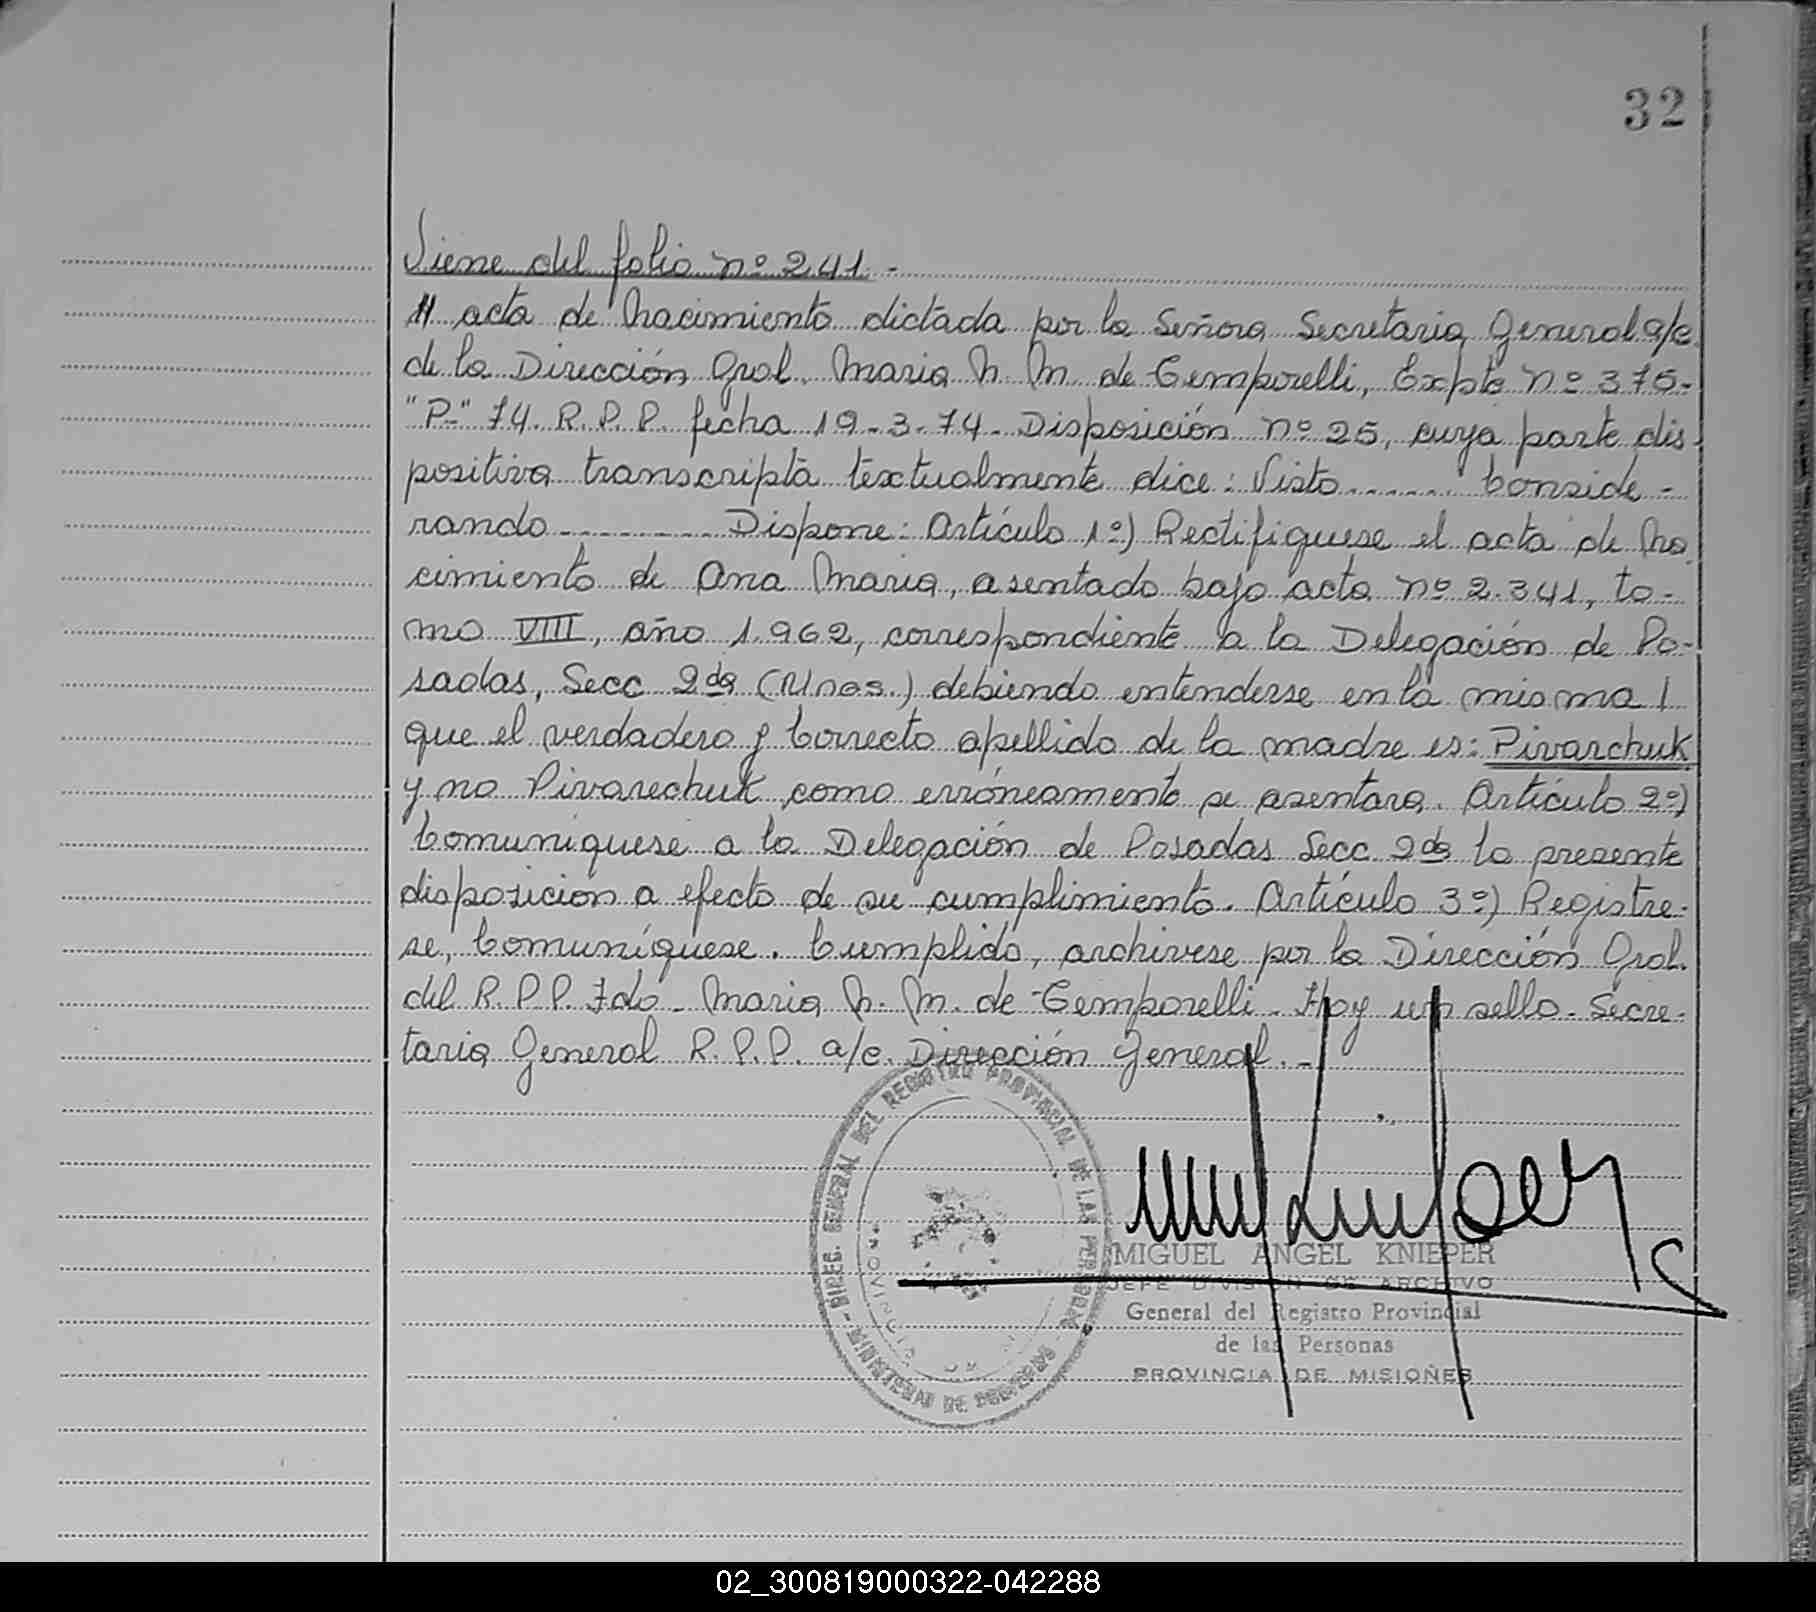 32
Viene del folio nº 241.-
// acta de Nacimiento dictada por la Señora Secretaria General a/c
de la Dirección Gral. Maria N. M. de Temporelli, Expte nº 375-
"P" 74. R.P.P. fecha 19-3-74- Disposición nº 25, cuya parte dis
positiva transcripta textualmente dice: Visto....... Conside-
rando........... Dispone: Artículo 1º) Rectifiquese el acta de Na
cimiento de Ana Maria, asentado bajo acta nº 2.341, to-
mo VIII, año 1.962, correspondiente a la Delegación de Po-
sadas, Secc 2da (Mnes.) debiendo entenderse en la misma /
que el verdadero y Correcto apellido de la madre es: Pivarchuk
y no Pivarechuk como erróneamente se asentara. Artículo 2º)
Comuníquese a la Delegación de Posadas Secc 2da la presente
disposición a efecto de su cumplimiento. Artículo 3º) Registre-
se, Comuníquese. Cumplido, archivese por la Dirección Gral.
del R.P.P. Fdo- Maria N. M. de Temporelli- Hay un sello- Secre-
taria General R.P.P. a/c. Dirección General.-
DIREC. GENERAL DEL REGISTRO PROVINCIAL DE LAS PERSONAS
MINISTERIO DE GOBIERNO
PROVINCIA DE
MIGUEL ANGEL KNIEPER
JEFE DIVISION DE ARCHIVO
General del Registro Provincial
de las Personas
PROVINCIA DE MISIONES
02_300819000322-042288